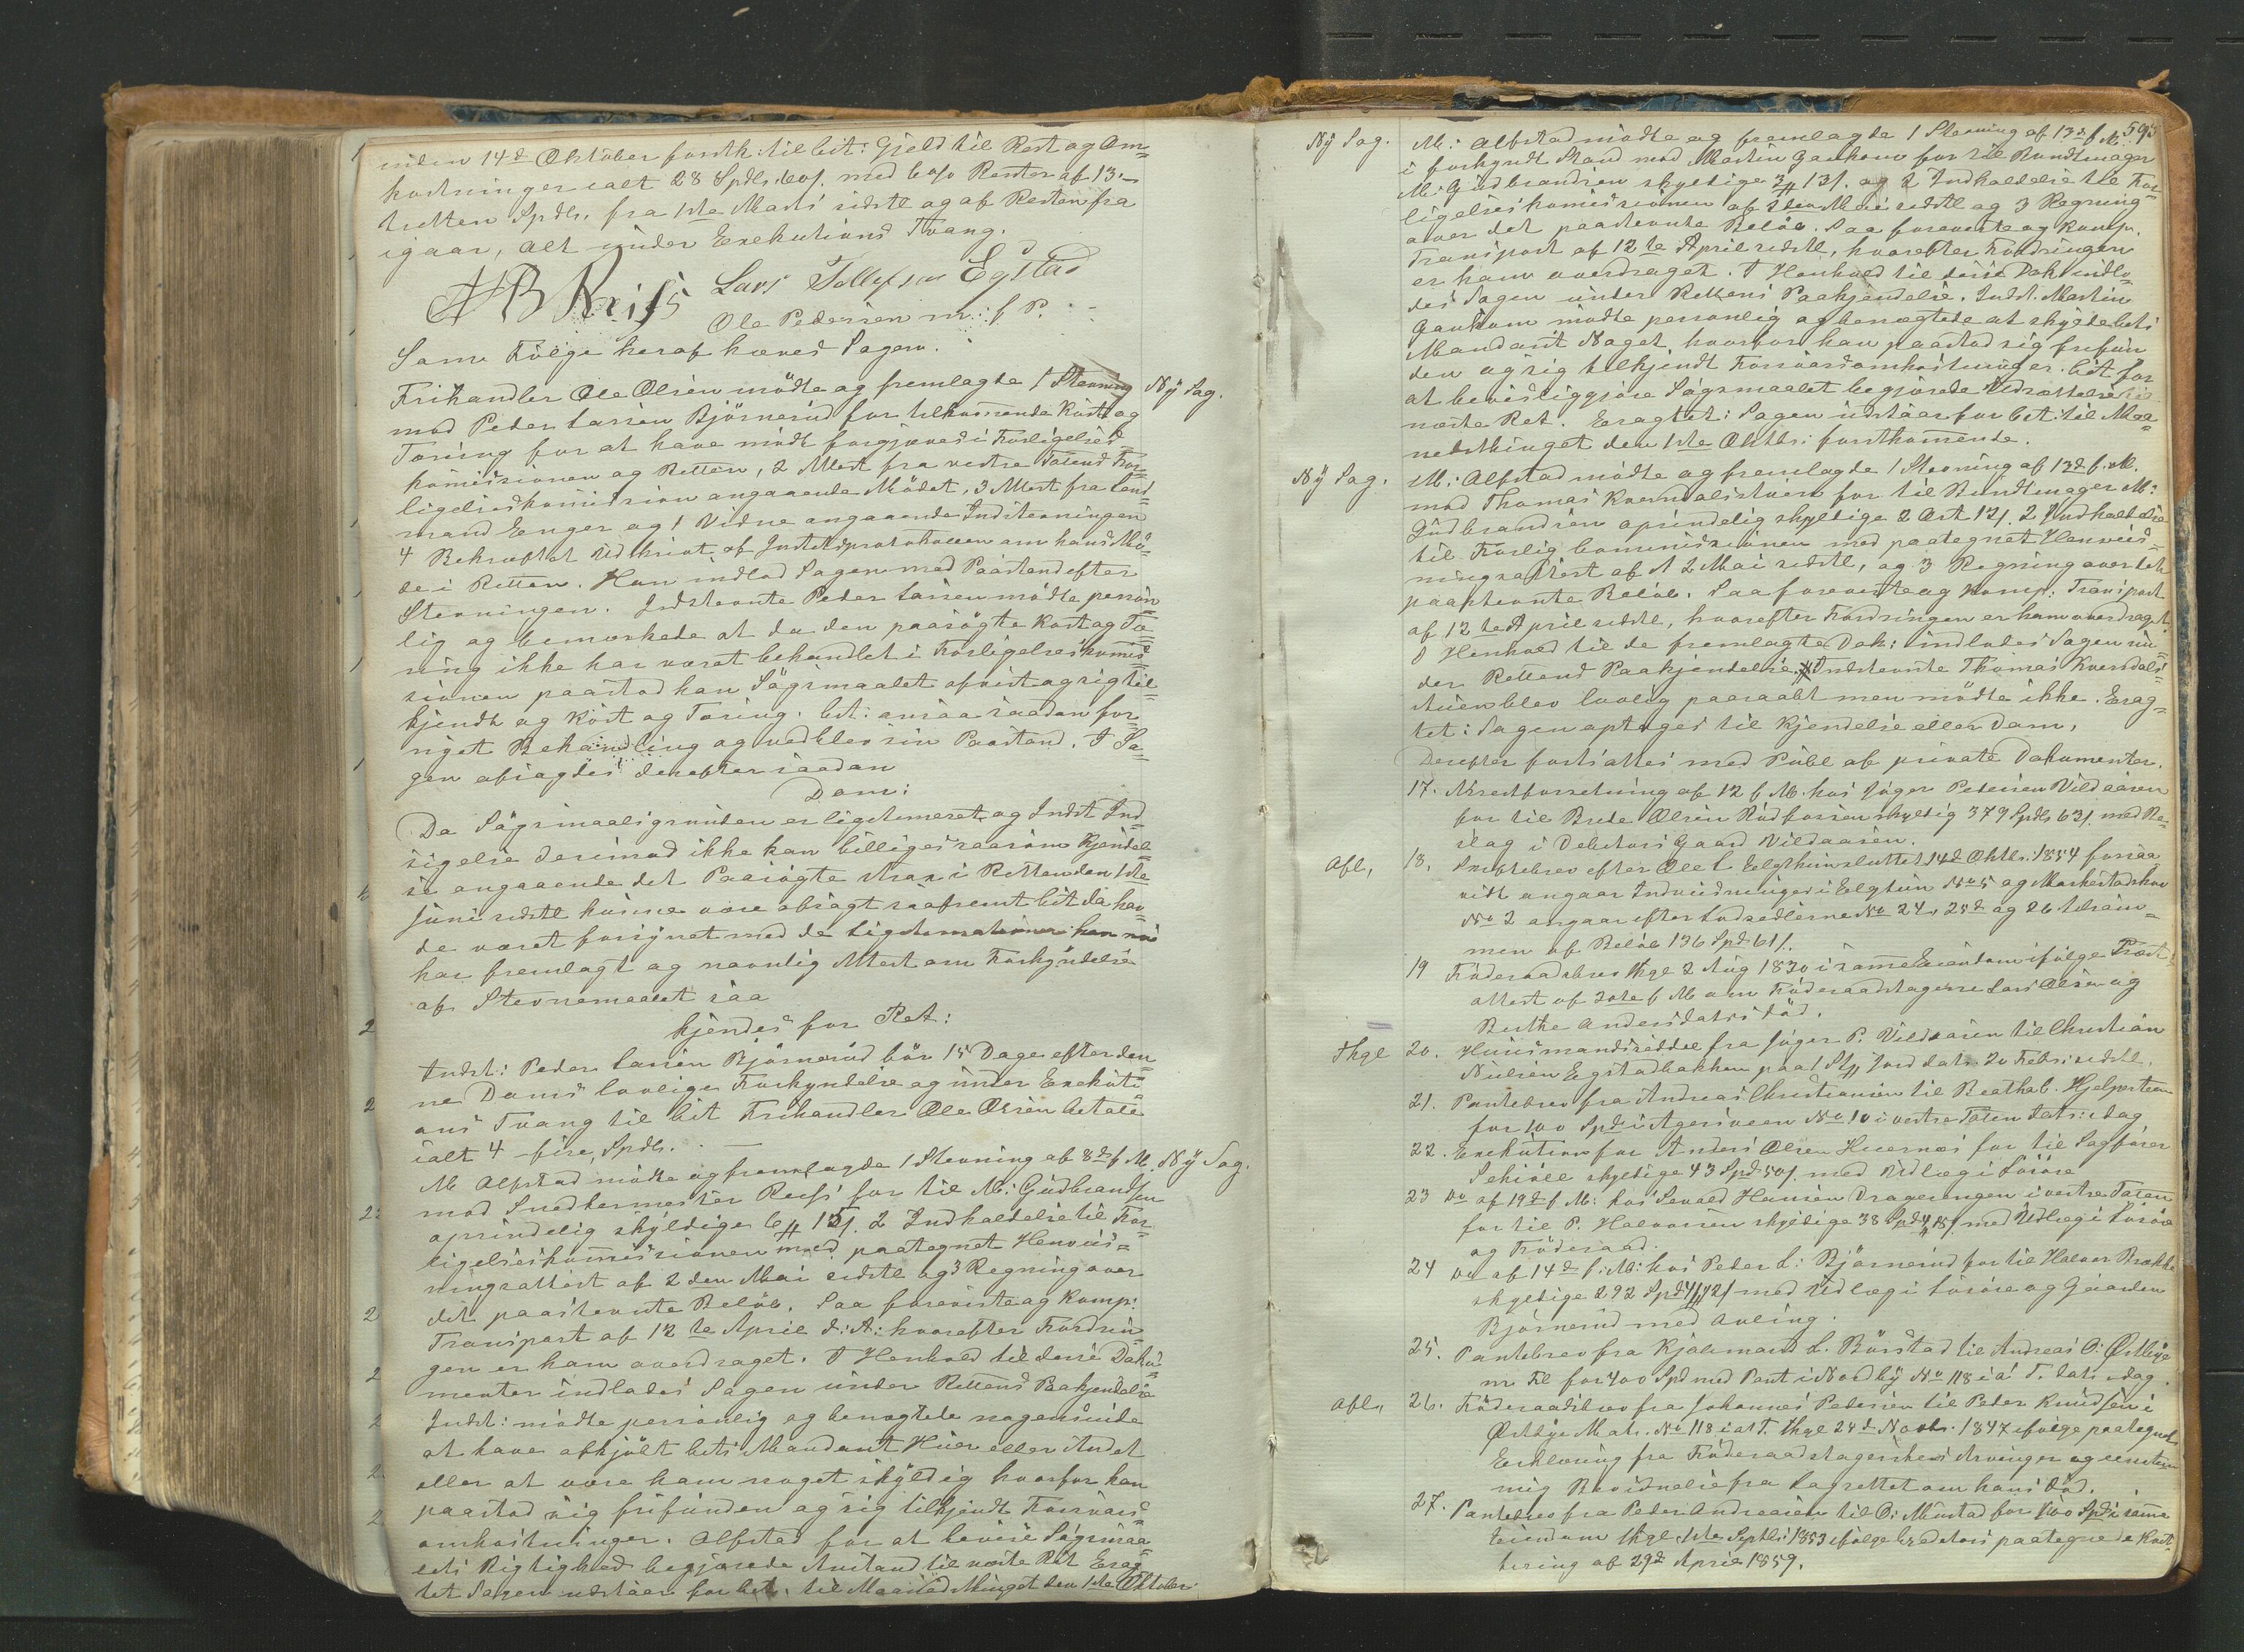 inden 14de Oktober førsth: til Cit: Gjeld til Rest og Om-
kostninger ialt 28 Spdlr. 60 s. med 6 o/o Renter af 13 -
tretten Spdlr. fra 1ste Marts sidstl og af Resten fra
igaar, alt under Exekutions Tvang.
Lars Tollefsen Egstad
Ole Pedersen m: f P.
Som Følge heraf hæves Sagen.
Frihandler Ole Olsen mödte og fremlagde 1 Stevning Ny Sag.
mod Peder Larsen Björnerud for tilkommende Kost og
Tæring for at have mödt forgjæves i Forligelses
komissionen og Retten, 2 Attest fra vestre Totens For-
ligelseskomission angaaende Mödet, 3 Attest fra Lens-
mand Enger og 1 Vidne angaaende Indstevningen
4 Bekræftet Udskrivt af Justitsprotokollen om hans Mö-
de i Retten. Han indlod Sagen med Paastand efter
Stevningen. Indstevnte Peder Larsen mödte person
lig og bemærkede at da den paasögte Kost og Tæ-
ring ikke har været behandlet i Forligelseskomis-
sionen paastod han Sögsmaalet afvist og sig til-
kjendt og Kost og Tæring. Cit: ansaa saadan for
niget Behandling og vedblev sin Paastand. I Sa-
gen afsagdes derefter saadan
Dom:
Da Sögsmaalsgrunden er ligitimeret og Indst Ind-
sigelse derimod ikke kan billiges saasom Kjendel-
se angaaende det Paasögte strax i Retten den 1ste
Juni sidstl kunne være afsagt saafremt Cit da hav-
de været forsynet med de Ligitimationer han nu
har fremlagt og navnlig Attest om Forkyndelse
af Stevnemaalet saa
kjendes for Ret:
Indst: Peder Larsen Björnerud bör 15 Dage efter den-
ne Doms lovlige Forkyndelse og under Exekuti-
ons Tvang til Cit Frihandler Ole Olsen betale
ialt 4 - fire, Spdlr.
M Alfstad mödte og fremlagde 1 Stevning af 8de f M. Ny Sag.
mod Snedkermester Reiss for til M: Gudbrandsen
oprindelig skyldige 15 s. 2 Indkaldelse til For-
ligelseskommissionen med paategnet Henviis-
ningsattest af 2den Mai sidstl og 3 Regning over
det paastevnte Belöb. Saa forevistes og Komp:
Transport af 12te April d: A: hvorefter Fordrin-
gen er ham overdraget. I Henhold til disse Doku-
menter indlades Sagen under Rettens Paakjendelse
Indst: mödte personlig og benægtede nogensinde
at have afkjöbt Cits Mandant Huer eller Andet
eller at være ham noget skyldig hvorfor han
paastod sig frifunden og sig tilkjendt Forsvars-
omkostninger. Alfstad for at bevise Sögsmaa-
lets Rigtighed begjærede Anstand til næste Ret Erag-
tet Sagen udstaaer for Cit. til Maanedsthinget den 1ste Oktober.
595
Ny Sag. M: Alfstad mödte og fremlagde 1 Stevning af 13de f M.
i forkyndt Stand mod Martin Gaukom for til Bundtmager
M: Gudbrandsen skyldige 3 # 13 s. og 2 Indkaldelse til For-
ligelseskomissionen af 2den Mai sidstl og 3 Regning
over det paastevnte Belöb. Saa forevistes og Komp.
Transport af 12te April sidstl, hvorefter Fordringen
er ham overdraget. I Henhold til disse Dok indla-
des Sagen under Rettens Paakjendelse. Indst. Martin
Gaukom mödte personlig og benægtede at skylde Cits
Mandant Noget, hvorfor han paastod sig frifun
den og sig tilkjendt Forsvarsomkostninger. Cit for
at bevisliggjöre Sögsmaalet begjærede Udsættelse til
næste Ret. Eragtet: Sagen udstaaer for Cit: til Maa-
nedsthinget den 1ste Oktbr: førstkommende.
Ny Sag. M: Alfstad mödte og fremlagde 1 Stevning af 13de f. M.
mod Thomas Kverndalstuen for til Bundtmager M:
Gudbrandsen oprindelig skyldige 2 Ort 12 s. 2 Indkaldelse
til Forlig Commissionen med paategnet Henviis-
ningsattest af 2 Mai sidstl, og 3 Regning over det
paastevnte Belöb. Saa forevistes og Komp. Transport
af 12te April sidstl, hvorefter Fordringen er ham overdraget.
I Henhold til de fremlagte Dok: indlades Sagen un-
der Rettens Paakjendelse. Indstevnte Thomas Kverndals-
stuen blev lovlig paaraabt men mödte ikke. Erag-
tet: Sagen optages til Kjendelse eller Dom,
Derefter fortsattes med Publ af private Dokumenter.
17. Arrestforretning af 12 f M. hos Jöger Petersen Vildaasen
for til Brede Olsen Rödfossen skyldig 379 Spdlr 63 s. med Be-
slag i Debitors Gaard Vildaasen.
Afl, 18. Skiftebrev efter Ole L Elgshuus sluttet 14de Oktbr. 1854 forsaa
vidt angaar Indvisninger i Elgtun No 5 og Markestadskov
No 2 angaar efter Lodsedlerne No 24, 25de og 26 tilsam-
men af Belöb 136 Spd 61 s.
19 Föderaadsbrev thgl 2 Aug 1830 i samme Eiendom ifölge Præst
attest af 20de f M om Föderaadstagerne Lars Olsen og
Berthe Andersdatters Död.
Thgl 20. Huusmandsseddel fra Jöger P. Vildaasen til Christian
Nielsen Egstadbakken paa 1 Stk Jord dat. 20 Febr: sidstl.
21. Pantebrev fra Andreas Christiansen til Beathe C. Hjelpsteen
for 100 Spd i Agersveen No 10 i vestre Toten Dats: idag
22. Exekution for Anders Olsen Huernæs for til Sagförer
Schiöll skyldige 43 Spd 50 s. med Udlæg i Lösöre
23 Do af 19de f M: hos Sevald Hansen Drageengen i vestre Toten
for til P. Halvorsen skyldige 38 Spd med Udlæg i Lösöre
og Föderaad.
24 Do af 14de f: M: hos Peder L: Björnerud for til Halvor Brække
skyldige 292 Spd med Udlæg i Lösöre og Gaarden
Björnerud med Avling.
25. Pantebrev fra Hjalmand L. Börstad til Andreas O: Østbye
m Fl for 400 Spd med Pant i Nordby No 118 i ö T. dats idag
Afl, 26. Föderaadsbrev fra Johannes Pedersen til Peder Knudsen i
Østbye Mat. No 118 i öst T. thgl 24de Novbr. 1847 ifölge paategnet
Erklæring fra Föderaadstagerskens Arvinger og eenstem
mig Bevidnelse fra Lagrettet om hans Död.
27. Pantebrev fra Peder Andreasen til O: Mustad for 100 Spd i samme
Eiendom thgl 1ste Septbr: 1853 ifölge Creditors paategnede Kvit-
tering af 29de April 1859.